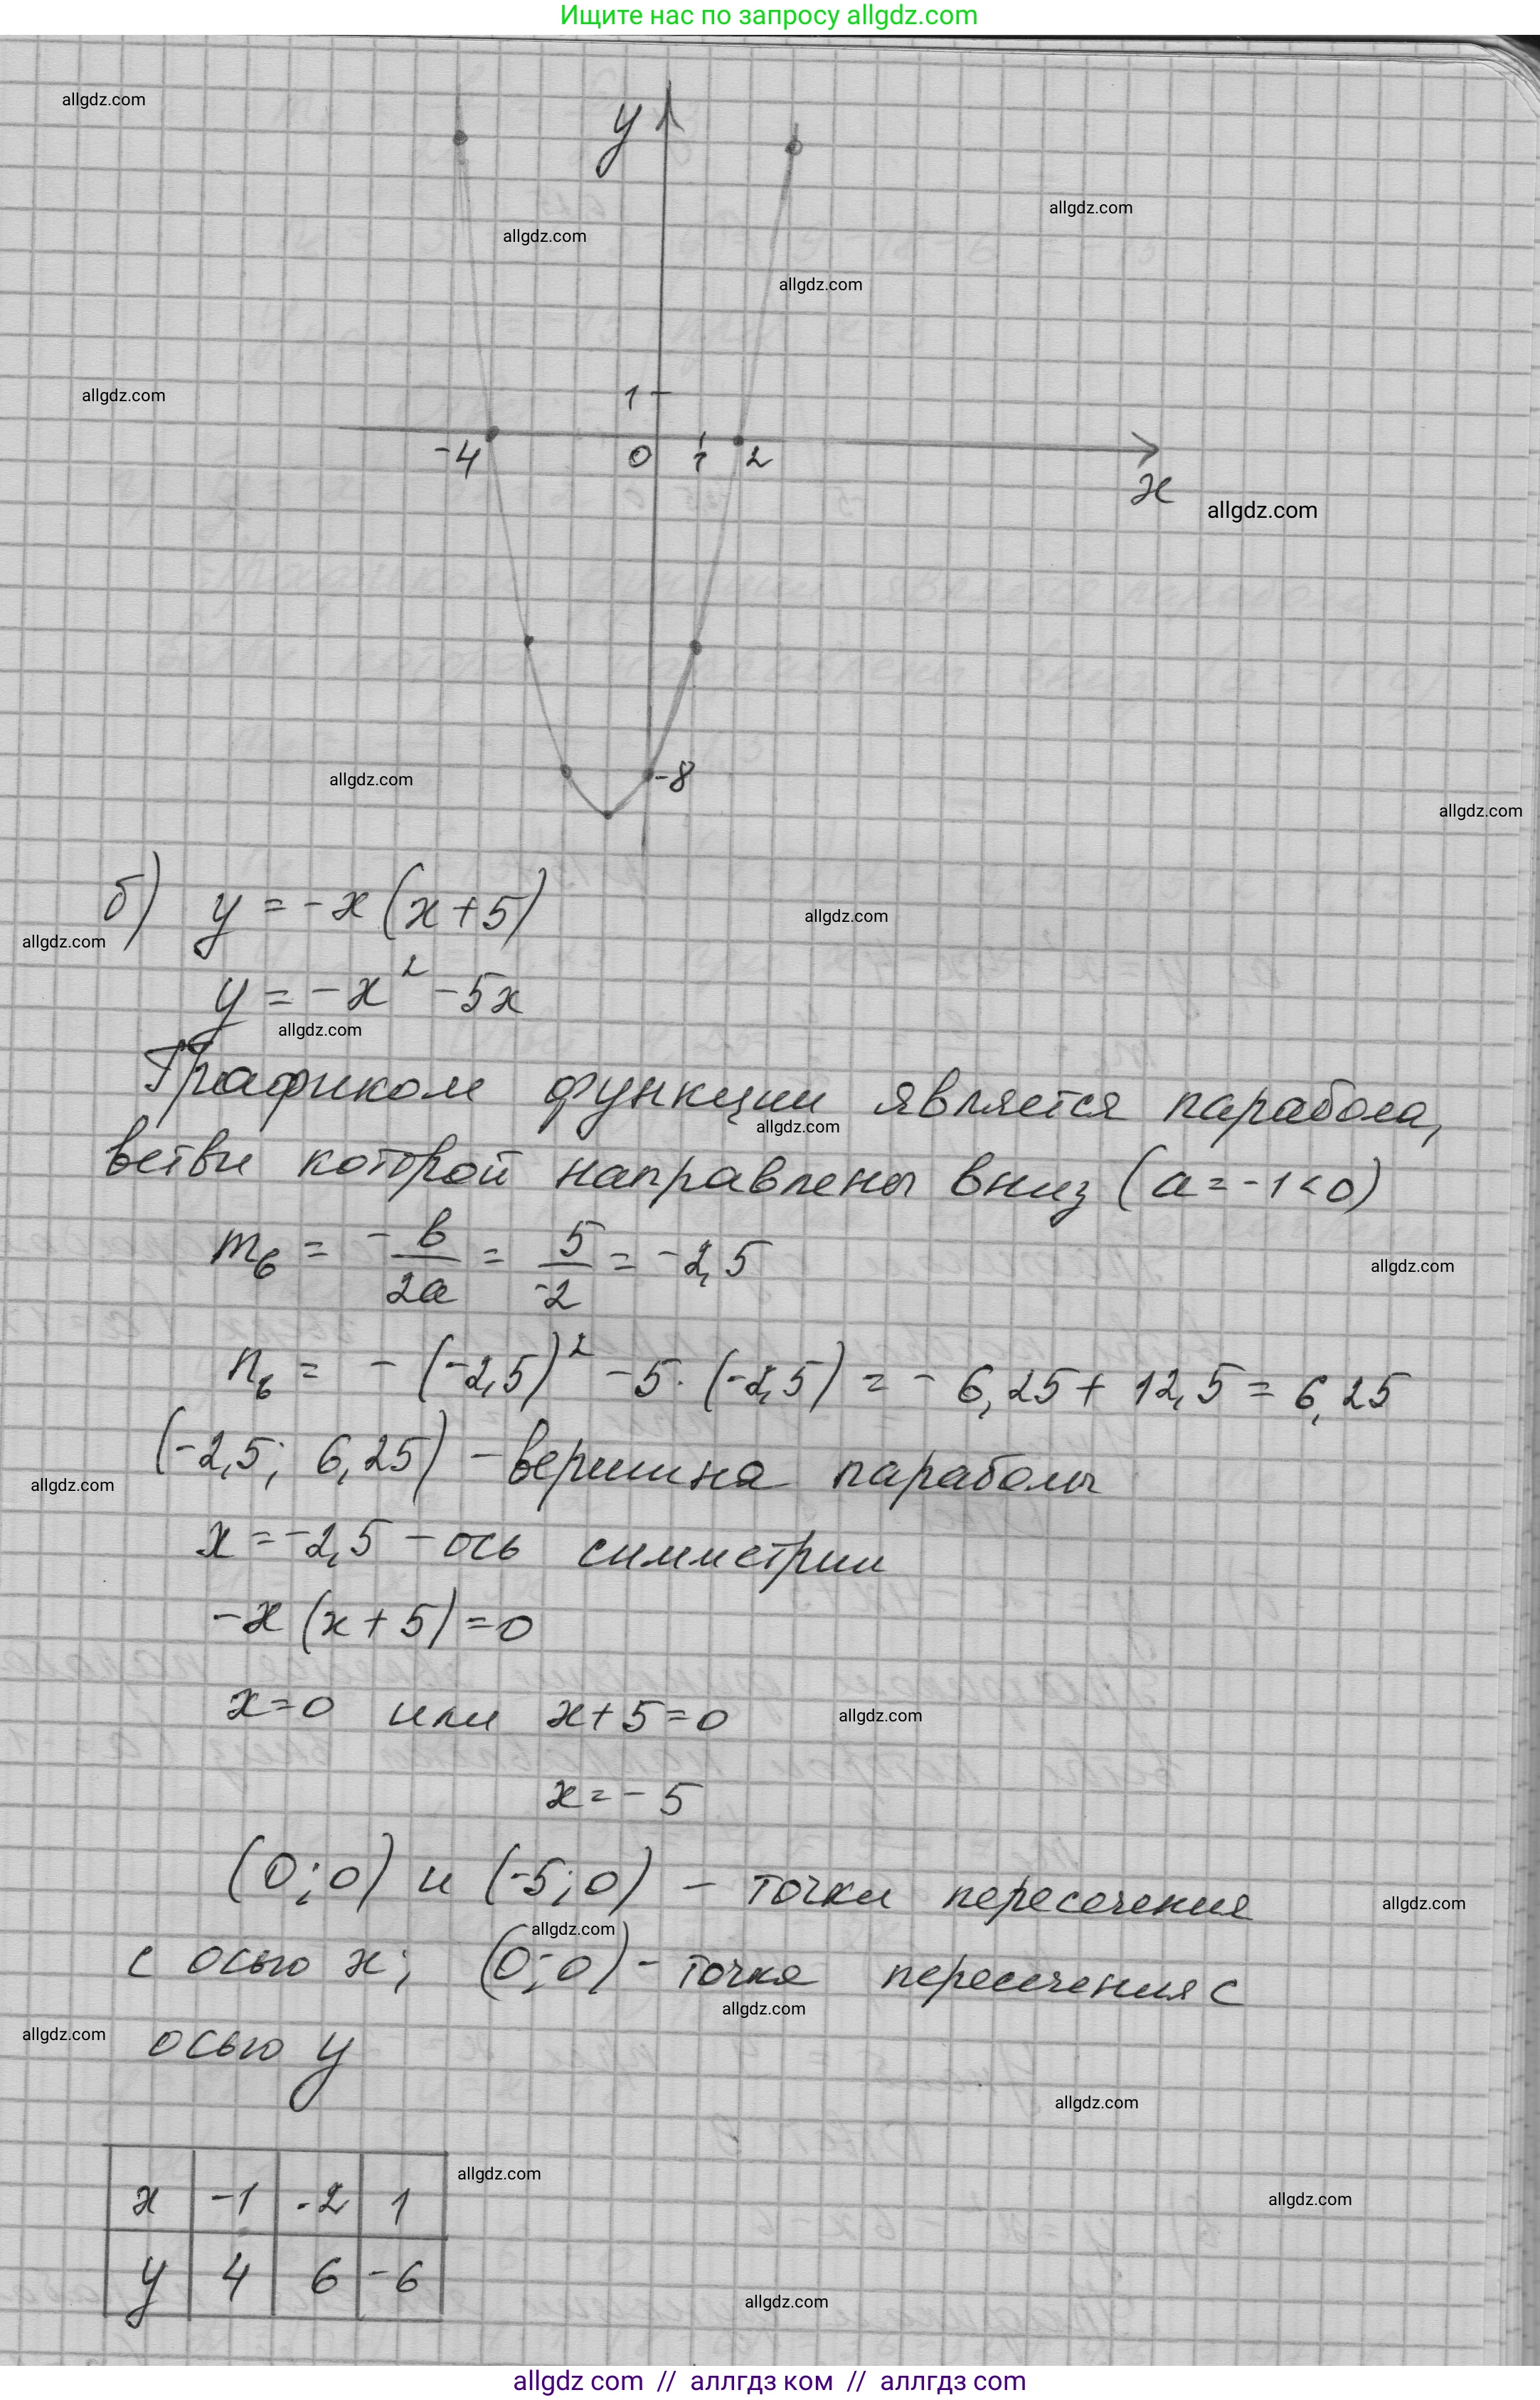 Ищите нас по запросу allgdz.com
allgdz.com
y
allgdz.com
allgdz.com
allgdz.com
allgdz.com
1
-4
0
1
2
x
allgdz.com
allgdz.com
-8
allgdz.com
б) y = -x (x+5)
allgdz.com
allgdz.com
y = -x² -5x
allgdz.com
Графиком функции является парабола,
allgdz.com
ветви которой направлены вниз (a = -1 < 0)
m_в = -в/2a = 5/-2 = -2,5
allgdz.com
n_в = -(-2,5)² -5·(-2,5) = -6,25 + 12,5 = 6,25
(-2,5; 6,25) - вершина параболы
allgdz.com
x = -2,5 - ось симметрии
-x (x+5) = 0
x=0 или x+5=0
allgdz.com
x = -5
(0;0) и (-5;0) - точки пересечения
allgdz.com
allgdz.com
с осью x; (0;0) - точка пересечения с
allgdz.com
allgdz.com
осью y
allgdz.com
allgdz.com
x -1 -2 1
allgdz.com
y 4 6 -6
allgdz.com
allgdz.com // аллгдз ком // аллгдз com